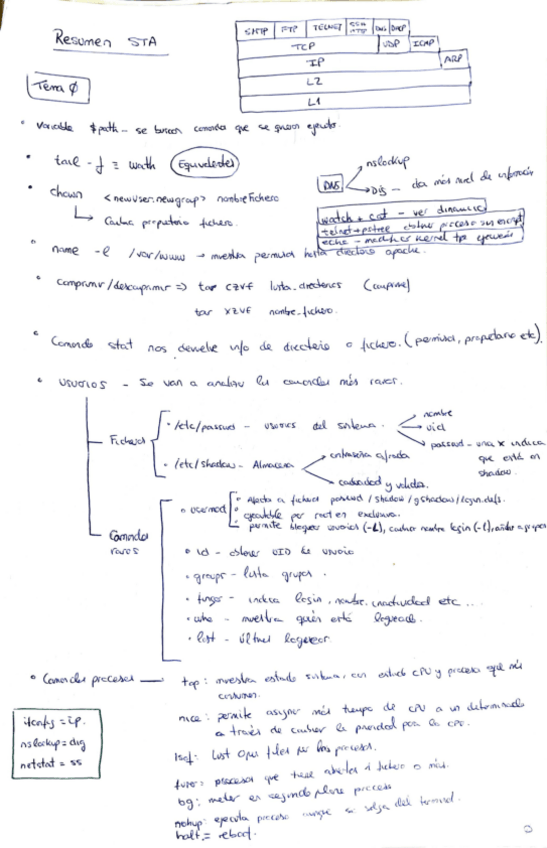 Resumen STA
SMTP FTP TELNET SSH HTTP DNS DHCP
TCP UDP ICMP
IP ARP
L2
L1
Tema 0
• Variable $path - se buscan comandos que se quieren ejecutar.
• tail -f ≡ wath (Equivalentes)
DNS
nslookup
Dig - da más nivel de información
• chown <newuser.newgroup> nombrefichero
Cambia propietario fichero.
watch + cat - ver
telnet + pstree obtener proceso
echo - modificar kernel
• name -l /var/www → muestra permisos hasta directorio apache.
• comprimir/descomprimir => tar czvf lista_directorios (comprime)
tar xzvf nombre_fichero.
• Comando stat nos devuelve info de directorio o fichero. (permisos, propietario etc).
• USUARIOS - Se van a analizar los comandos más raros.
Ficheros
• /etc/passwd - usuarios del sistema.
nombre
uid
passwd - una x indica que está en shadow.
• /etc/shadow - Almacena
contraseña cifrada
caducidad y validez.
Comandos raros
• usermod
• Afecta a ficheros passwd / shadow / gshadow / login.defs.
• ejecutable por root en exclusiva.
• permite bloquear usuarios (-L), cambiar nombre login (-l), añadir a grupos
• id - obtener UID de usuario
• groups - lista grupos.
• finger - indica login, nombre, inactividad etc...
• who - muestra quién está logueado.
• last - últimos
• Comandos procesos
top: muestra estado sistema, con estado CPU y procesos que más consumen.
nice: permite asignar más tiempo de CPU a un determinado
a través de cambiar la prioridad por la CPU.
lsof: List Open files por los procesos.
fuser: procesos que tiene abiertos el fichero o más.
bg: meter en segundo plano proceso
nohup: ejecuta proceso aunque se salga del terminal.
halt = reboot.
ifconfig = ip.
nslookup = dig
netstat = ss